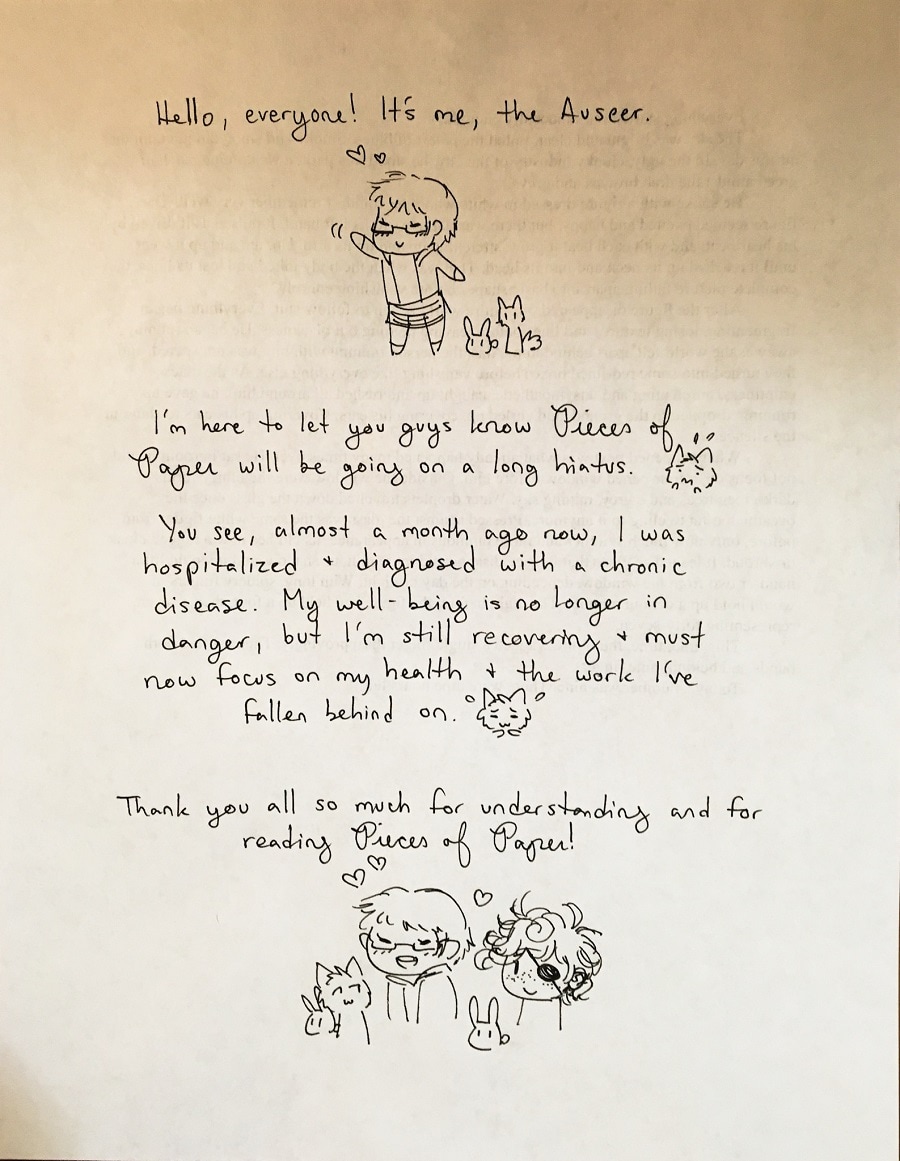 Hello, everyone! It's me, the Auseer.
I'm here to let you guys know Pieces of
Paper will be going on a long hiatus.
You see, almost a month ago now, I was
hospitalized + diagnosed with a chronic
disease. My well-being is no longer in
danger, but I'm still recovering + must
now focus on my health + the work I've
fallen behind on.
Thank you all so much for understanding and for
reading Pieces of Paper!